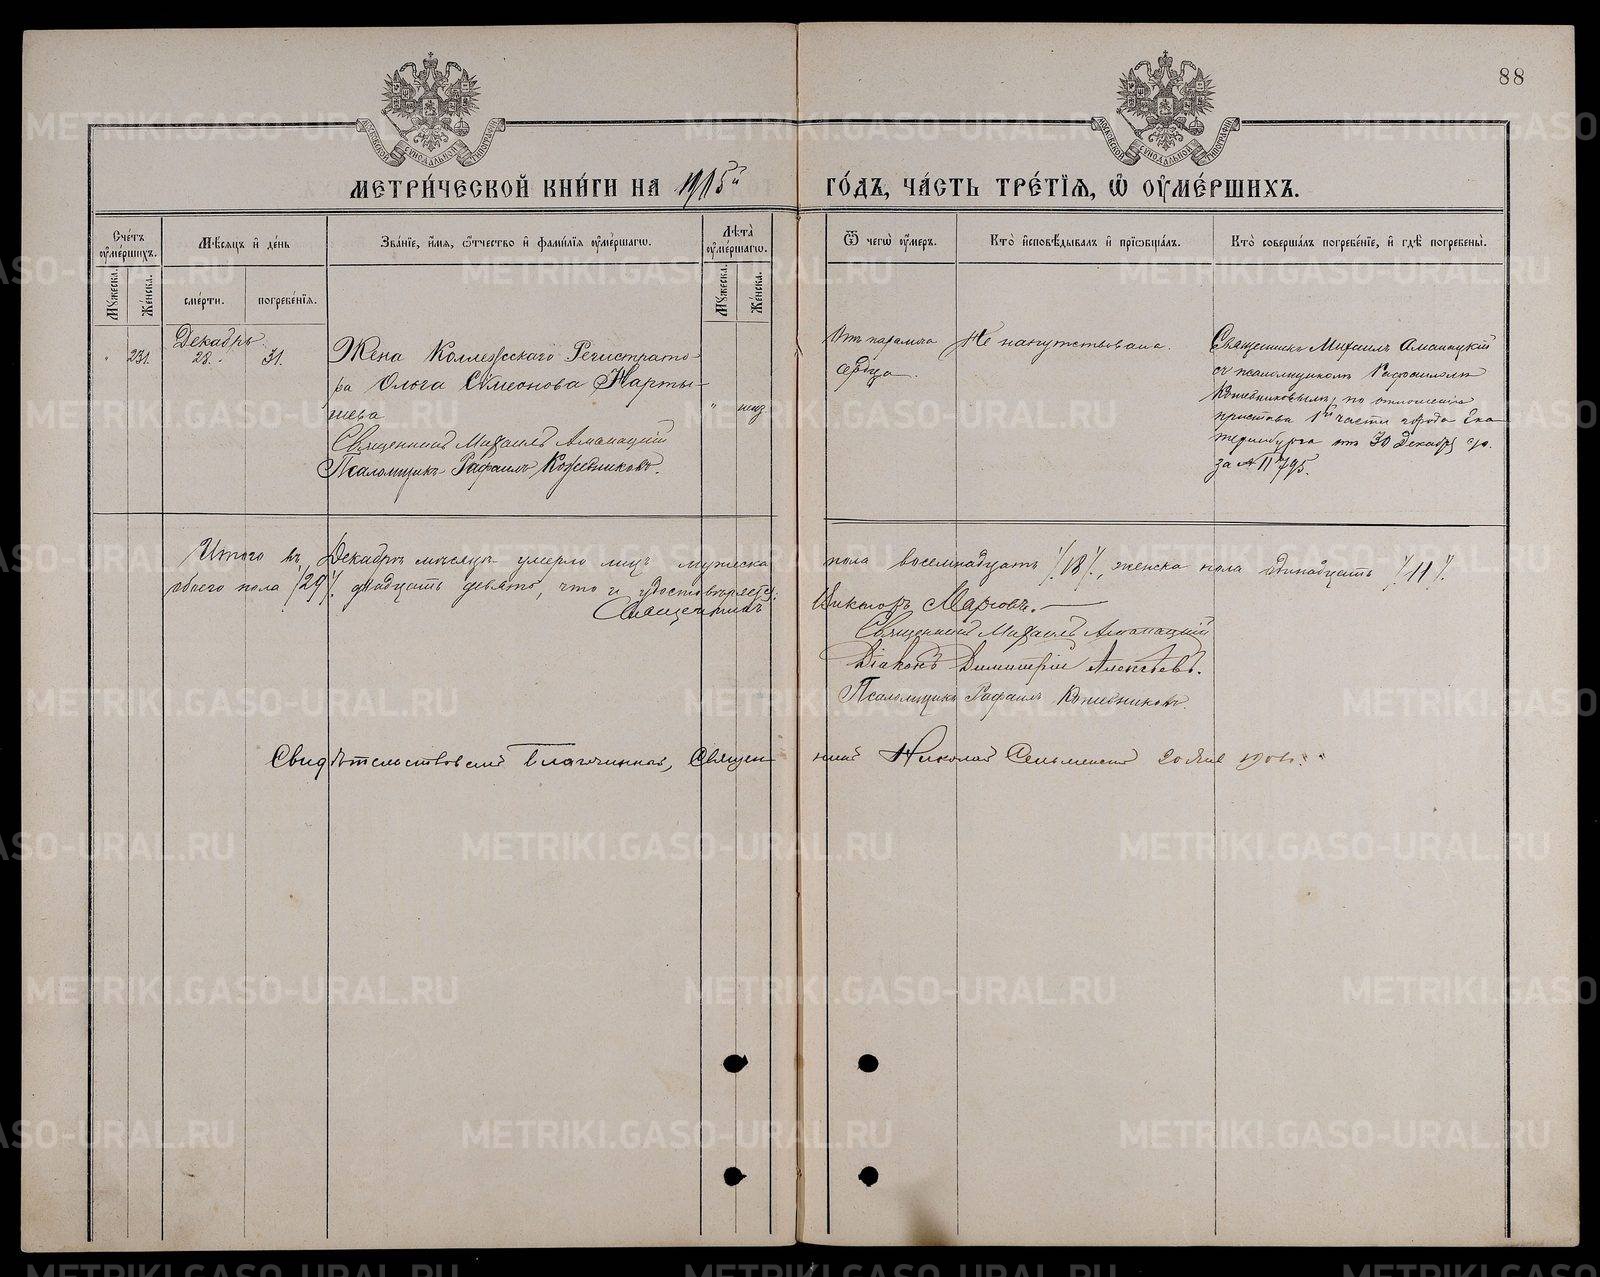 88
МЕТРИ́ЧЕСКОЙ КНИ́ГИ НА 1915й ГО́ДЪ, ЧА́СТЬ ТРЕ́ТІѦ, Ѡ ОУМЕ́РШИХЪ.
Сче́тъ оумершихъ.
Мѣсяцъ и де́нь
Зва́ніе, имя, ѿтчество и фами́лія оуме́ршагѡ.
Лѣта̀ оуме́ршагѡ.
Ѿ чегѡ̀ оу́меръ.
Кто̀ исповѣдывалъ и пріѡбща́лъ.
Кто̀ соверша́лъ погребе́ніе, и гдѣ погребены̀.
Мꙋжеска.
Же́нска.
сме́рти.
погребе́нія.
Мꙋжеска.
Же́нска.
Декабрь
" 231. 28. 31.
Жена Коллежскаго Регистрато-
ра Ольга Сѵмеонова Нарты-
шева
Священникъ Михаилъ Аманацкій
Псаломщикъ Рафаилъ Кожевниковъ.
"
Отъ паралича
сердца.
Не напутствована.
Священникъ Михаилъ Аманацкій
съ псаломщикомъ Рафаиломъ
Кожевниковымъ, по отношенію
пристава 1й части города Ека
теринбурга отъ 30 Декабря
за № 11795.
Итого въ Декабрѣ мѣсяцѣ умерло лицъ мужеска пола восемнадцать /18/, женска пола одинадцать /11/,
обоего пола /29/. двадцать девять, что и удостовѣряется:
Священникъ Викторъ Марковъ.
Священникъ Михаилъ Аманацкій
Діаконъ Димитрій Алексѣевъ.
Псаломщикъ Рафаилъ Кожевниковъ.
Свидѣтельствовалъ Благочинный, Священникъ Николай